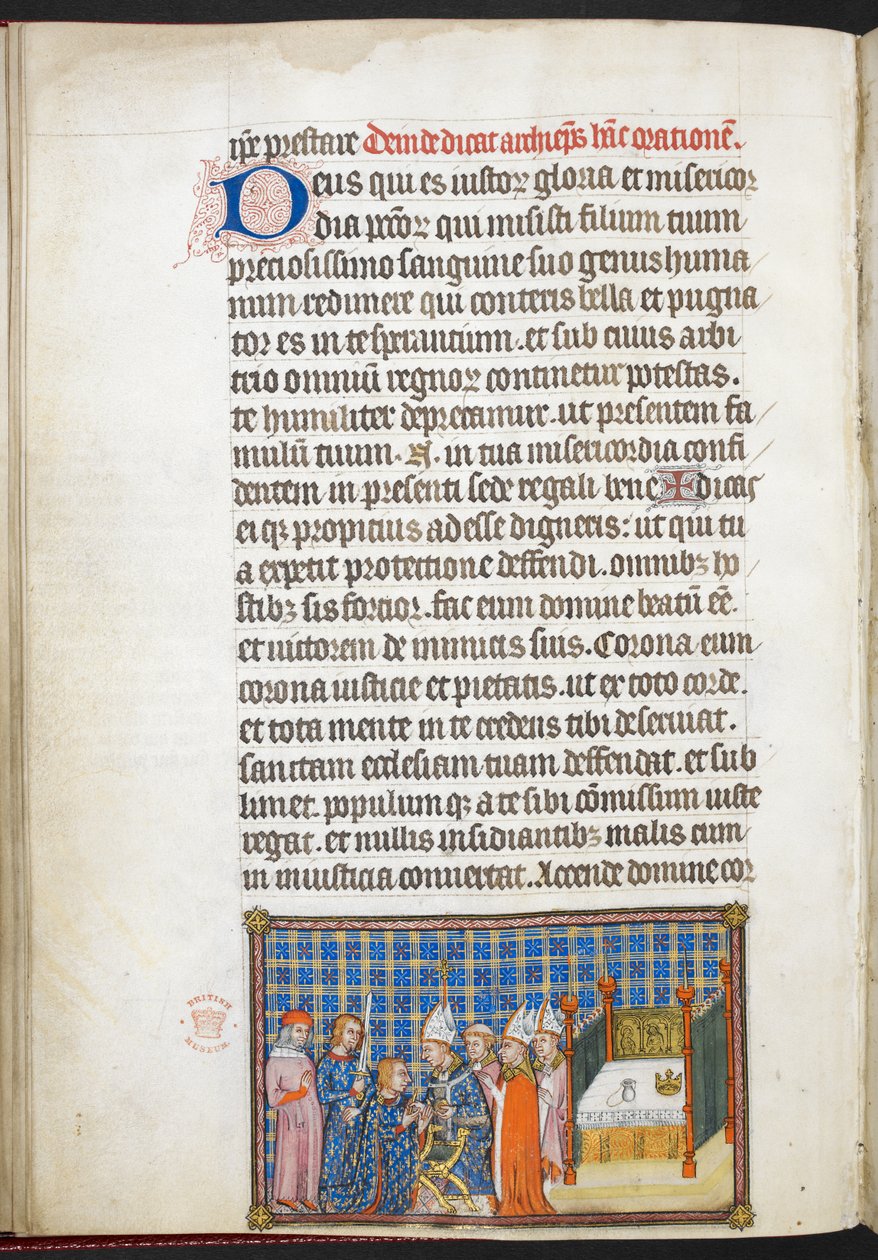 ip̄e prestare Deinde dicat archiep̄s hāc orationē.
Deus qui es iustoꝝ gloria et misericor
dia pccō̄ꝝ qui misisti filium tuum
preciosissimo sanguine suo genus huma
num redimere qui conteris bella et pugna
tor es in te sperantium. et sub cuius arbi
trio omniū regnoꝝ continetur potestas.
te humiliter deprecamur. ut presentem fa
mulū tuum. N. in tua misericordia confi
dentem in presenti sede regali bene✠dicas
ei qꝫ propicius adesse digneris: ut qui tu
a expetit protectione deffendi. omnibꝫ ho
stibꝫ sis forcior. fac eum domine beatū eē.
et uictorem de inimicis suis. Corona eum
corona iusticie et pietatis. ut ex toto corde.
et tota mente in te credens tibi deseruiat.
sanctam ecclesiam tuam deffendat. et sub
limet. populum qꝫ a te sibi cōmissum iuste
regat. et nullis insidiantibꝫ malis eum
in iniusticia conuertat. Accende domine cor
BRITISH
MUSEUM